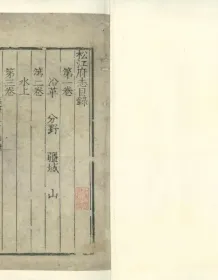 松江府志目錄
第一卷
沿革 分野 疆域 山
第二卷
水上
第三卷